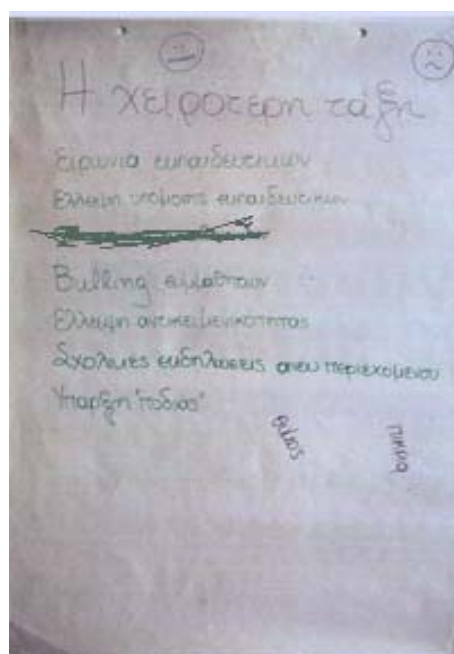 Η χειρότερη τάξη
Ειρωνια εκπαιδευτικων
Ελλειψη υπομονης εκπαιδευτικων
Bulling συμμαθητων
Ελλειψη αντικειμενικοτητας
Σχολικες εκδηλωσεις ανευ περιεχομενου
Υπαρξη "ποδιας"